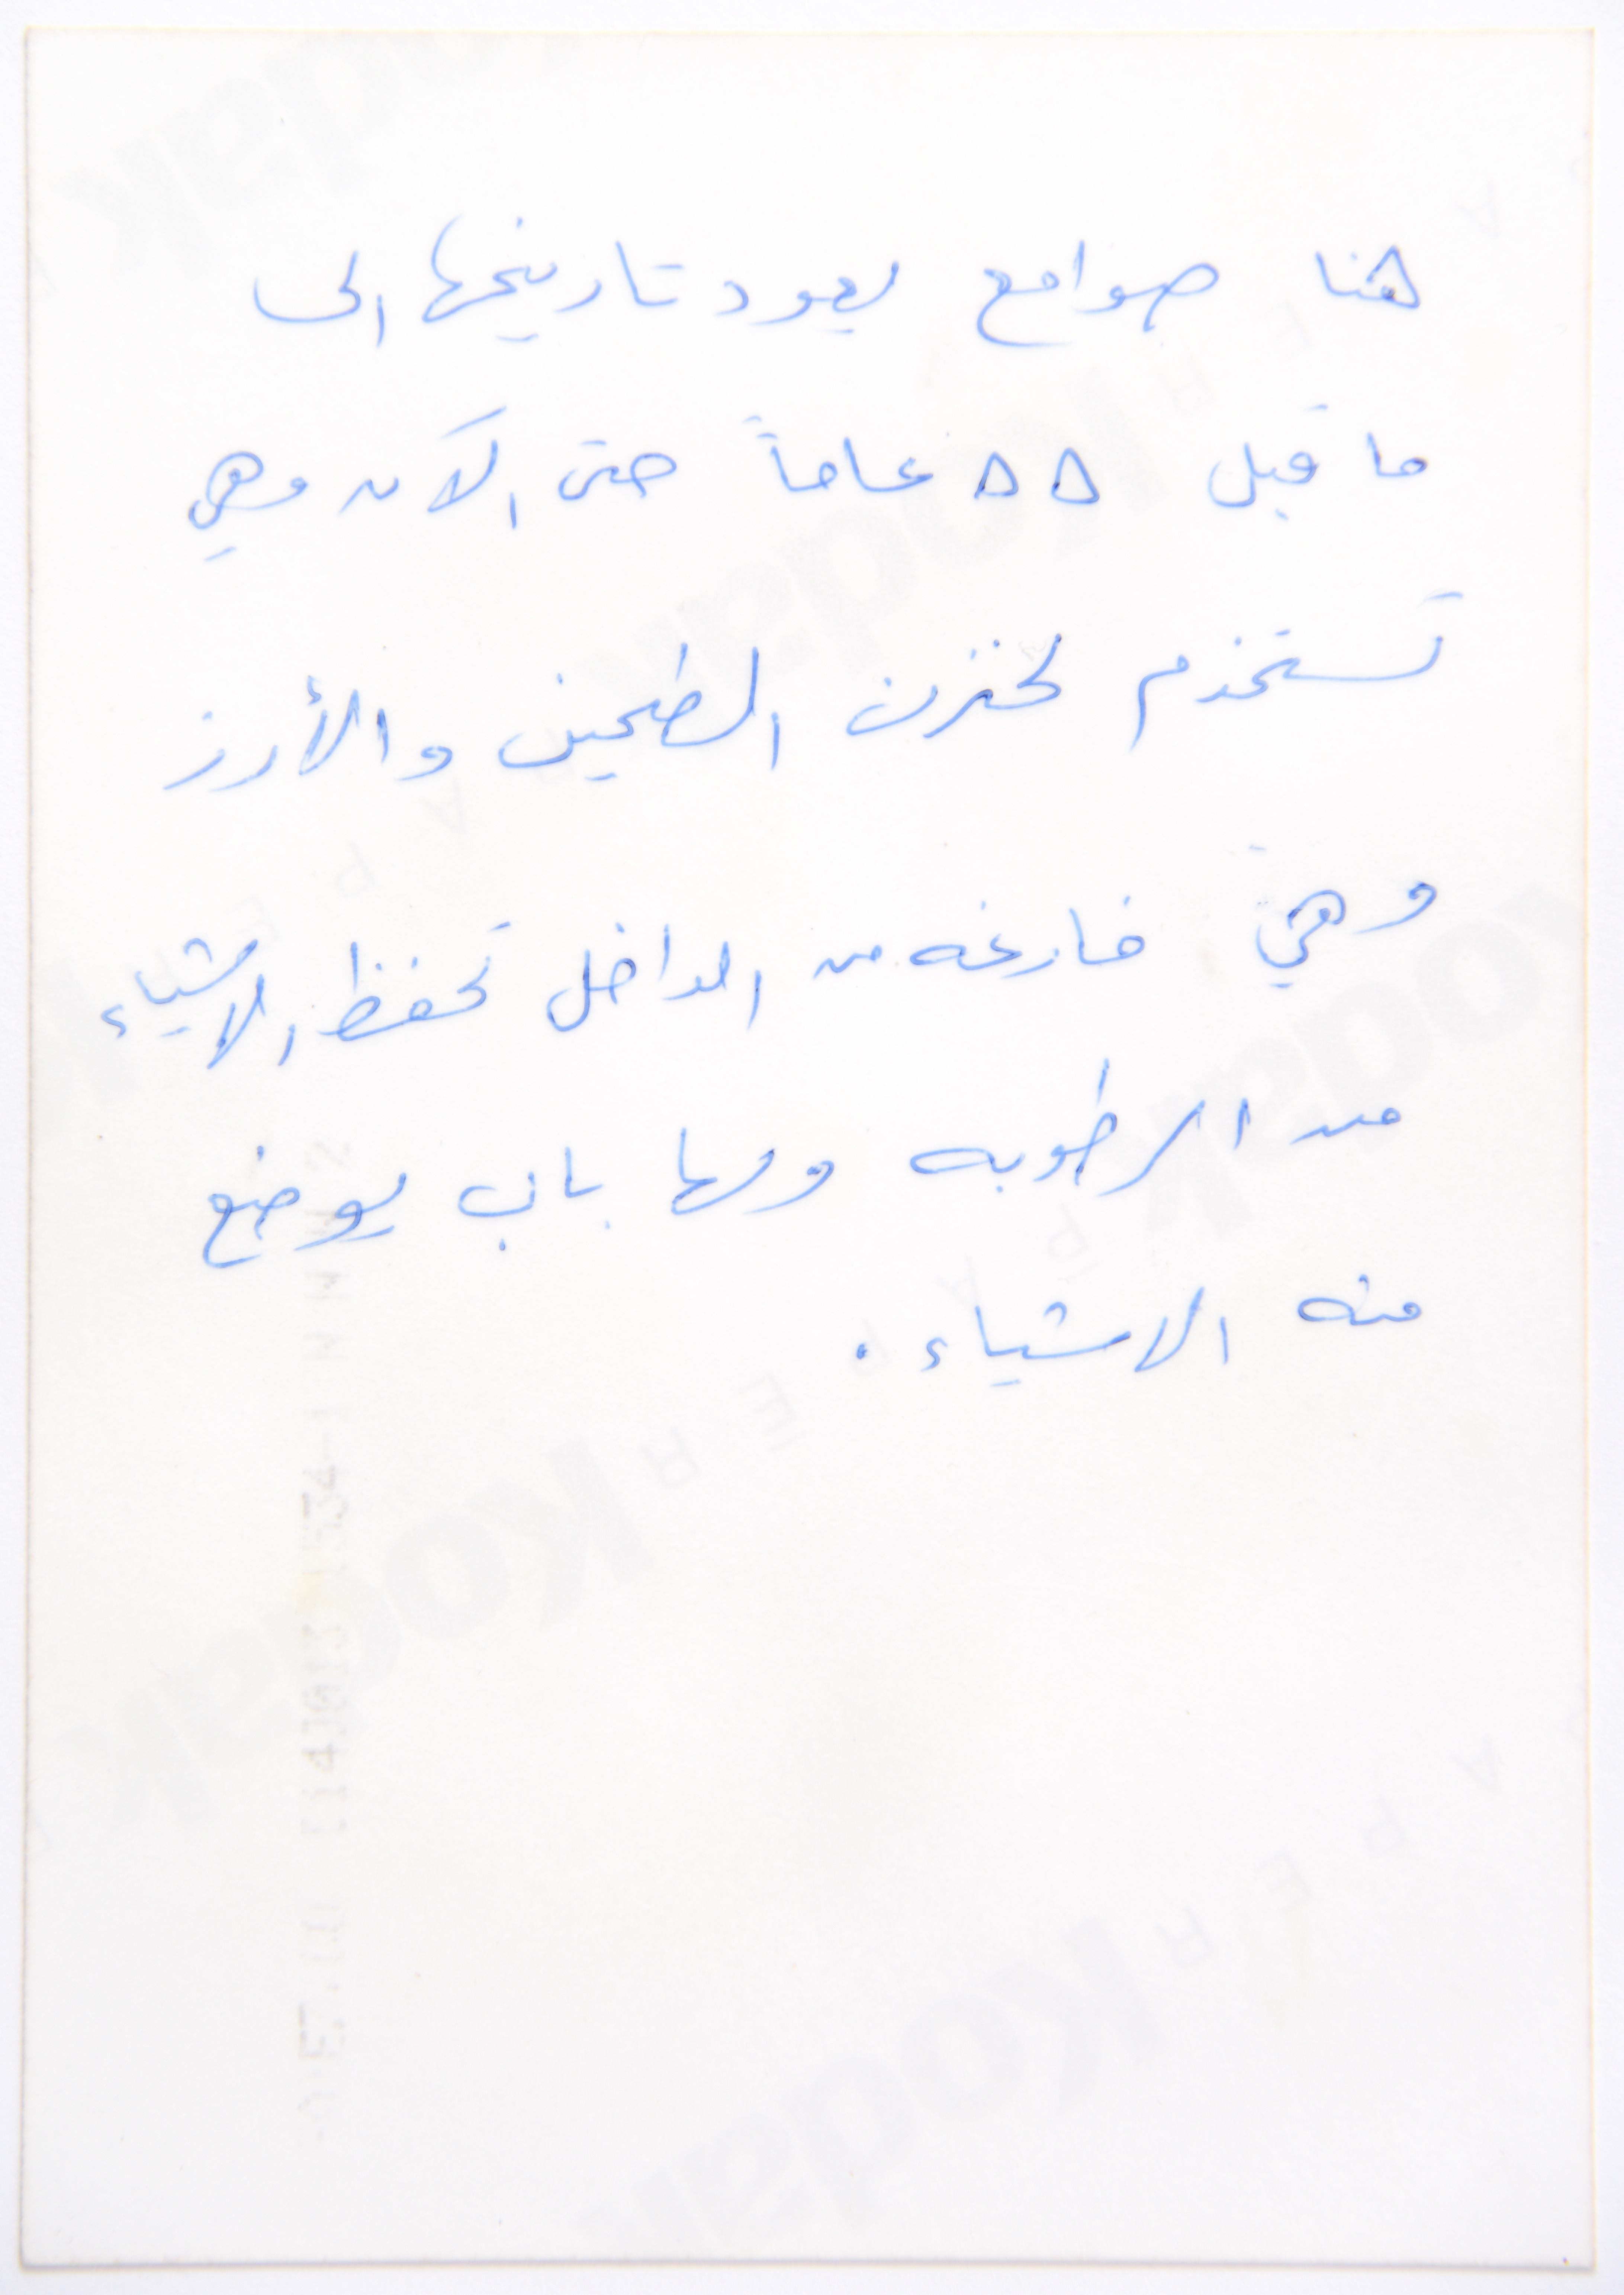 هنا صوامع يعود تاريخها الى
ما قبل ٥٥ عاماً حتى الآن وهي
تستخدم لخزن الطحين والأرز
وهي فارغه من الداخل تحفظ الاشياء
من الرطوبه ولها باب يوضع
منه الاشياء .